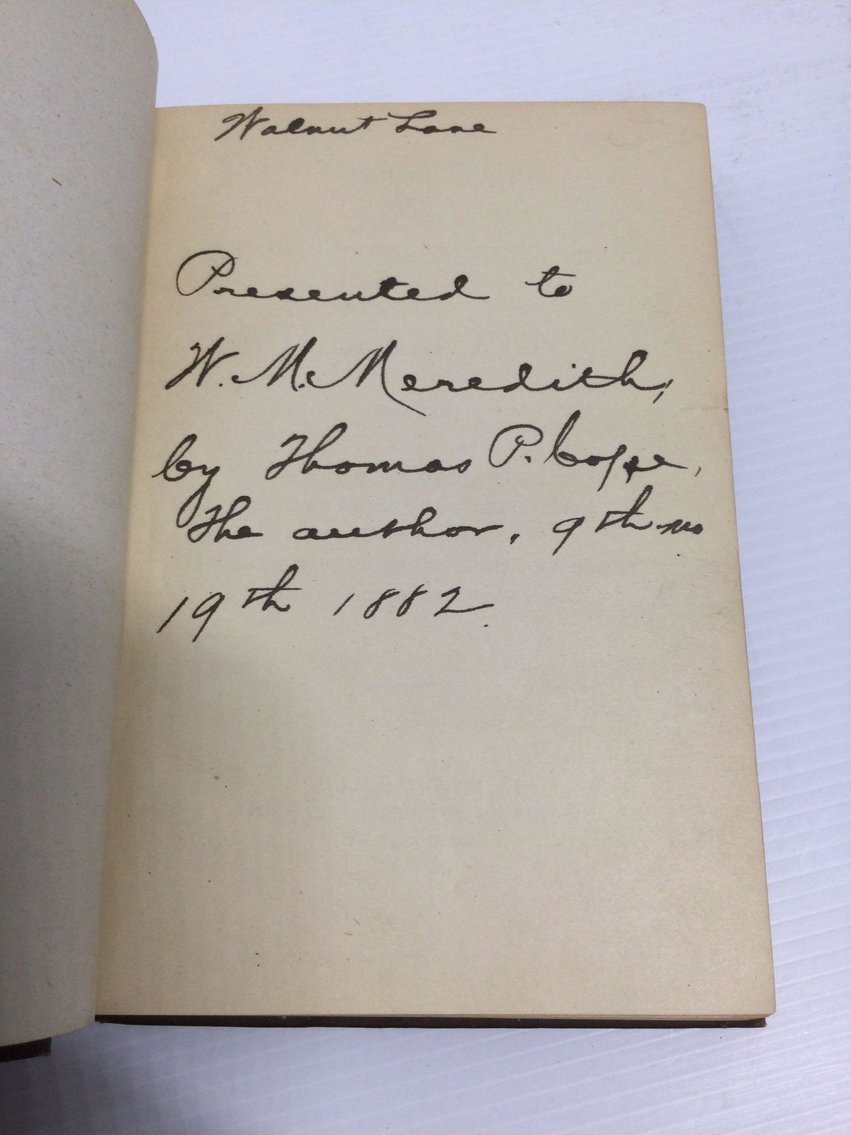 Walnut Lane
Presented to
W. M. Meredith,
by Thomas P. Cope,
The author, 9th mo
19th 1882.